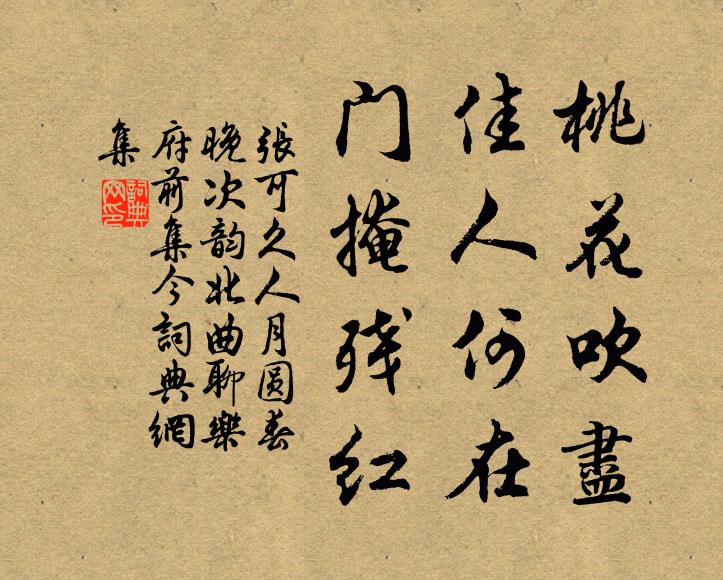 桃花吹盡
佳人何在
门掩残红
張可久人月圆春
晚次韵北曲聊樂
府前集今詞典網
集
詞典
网印